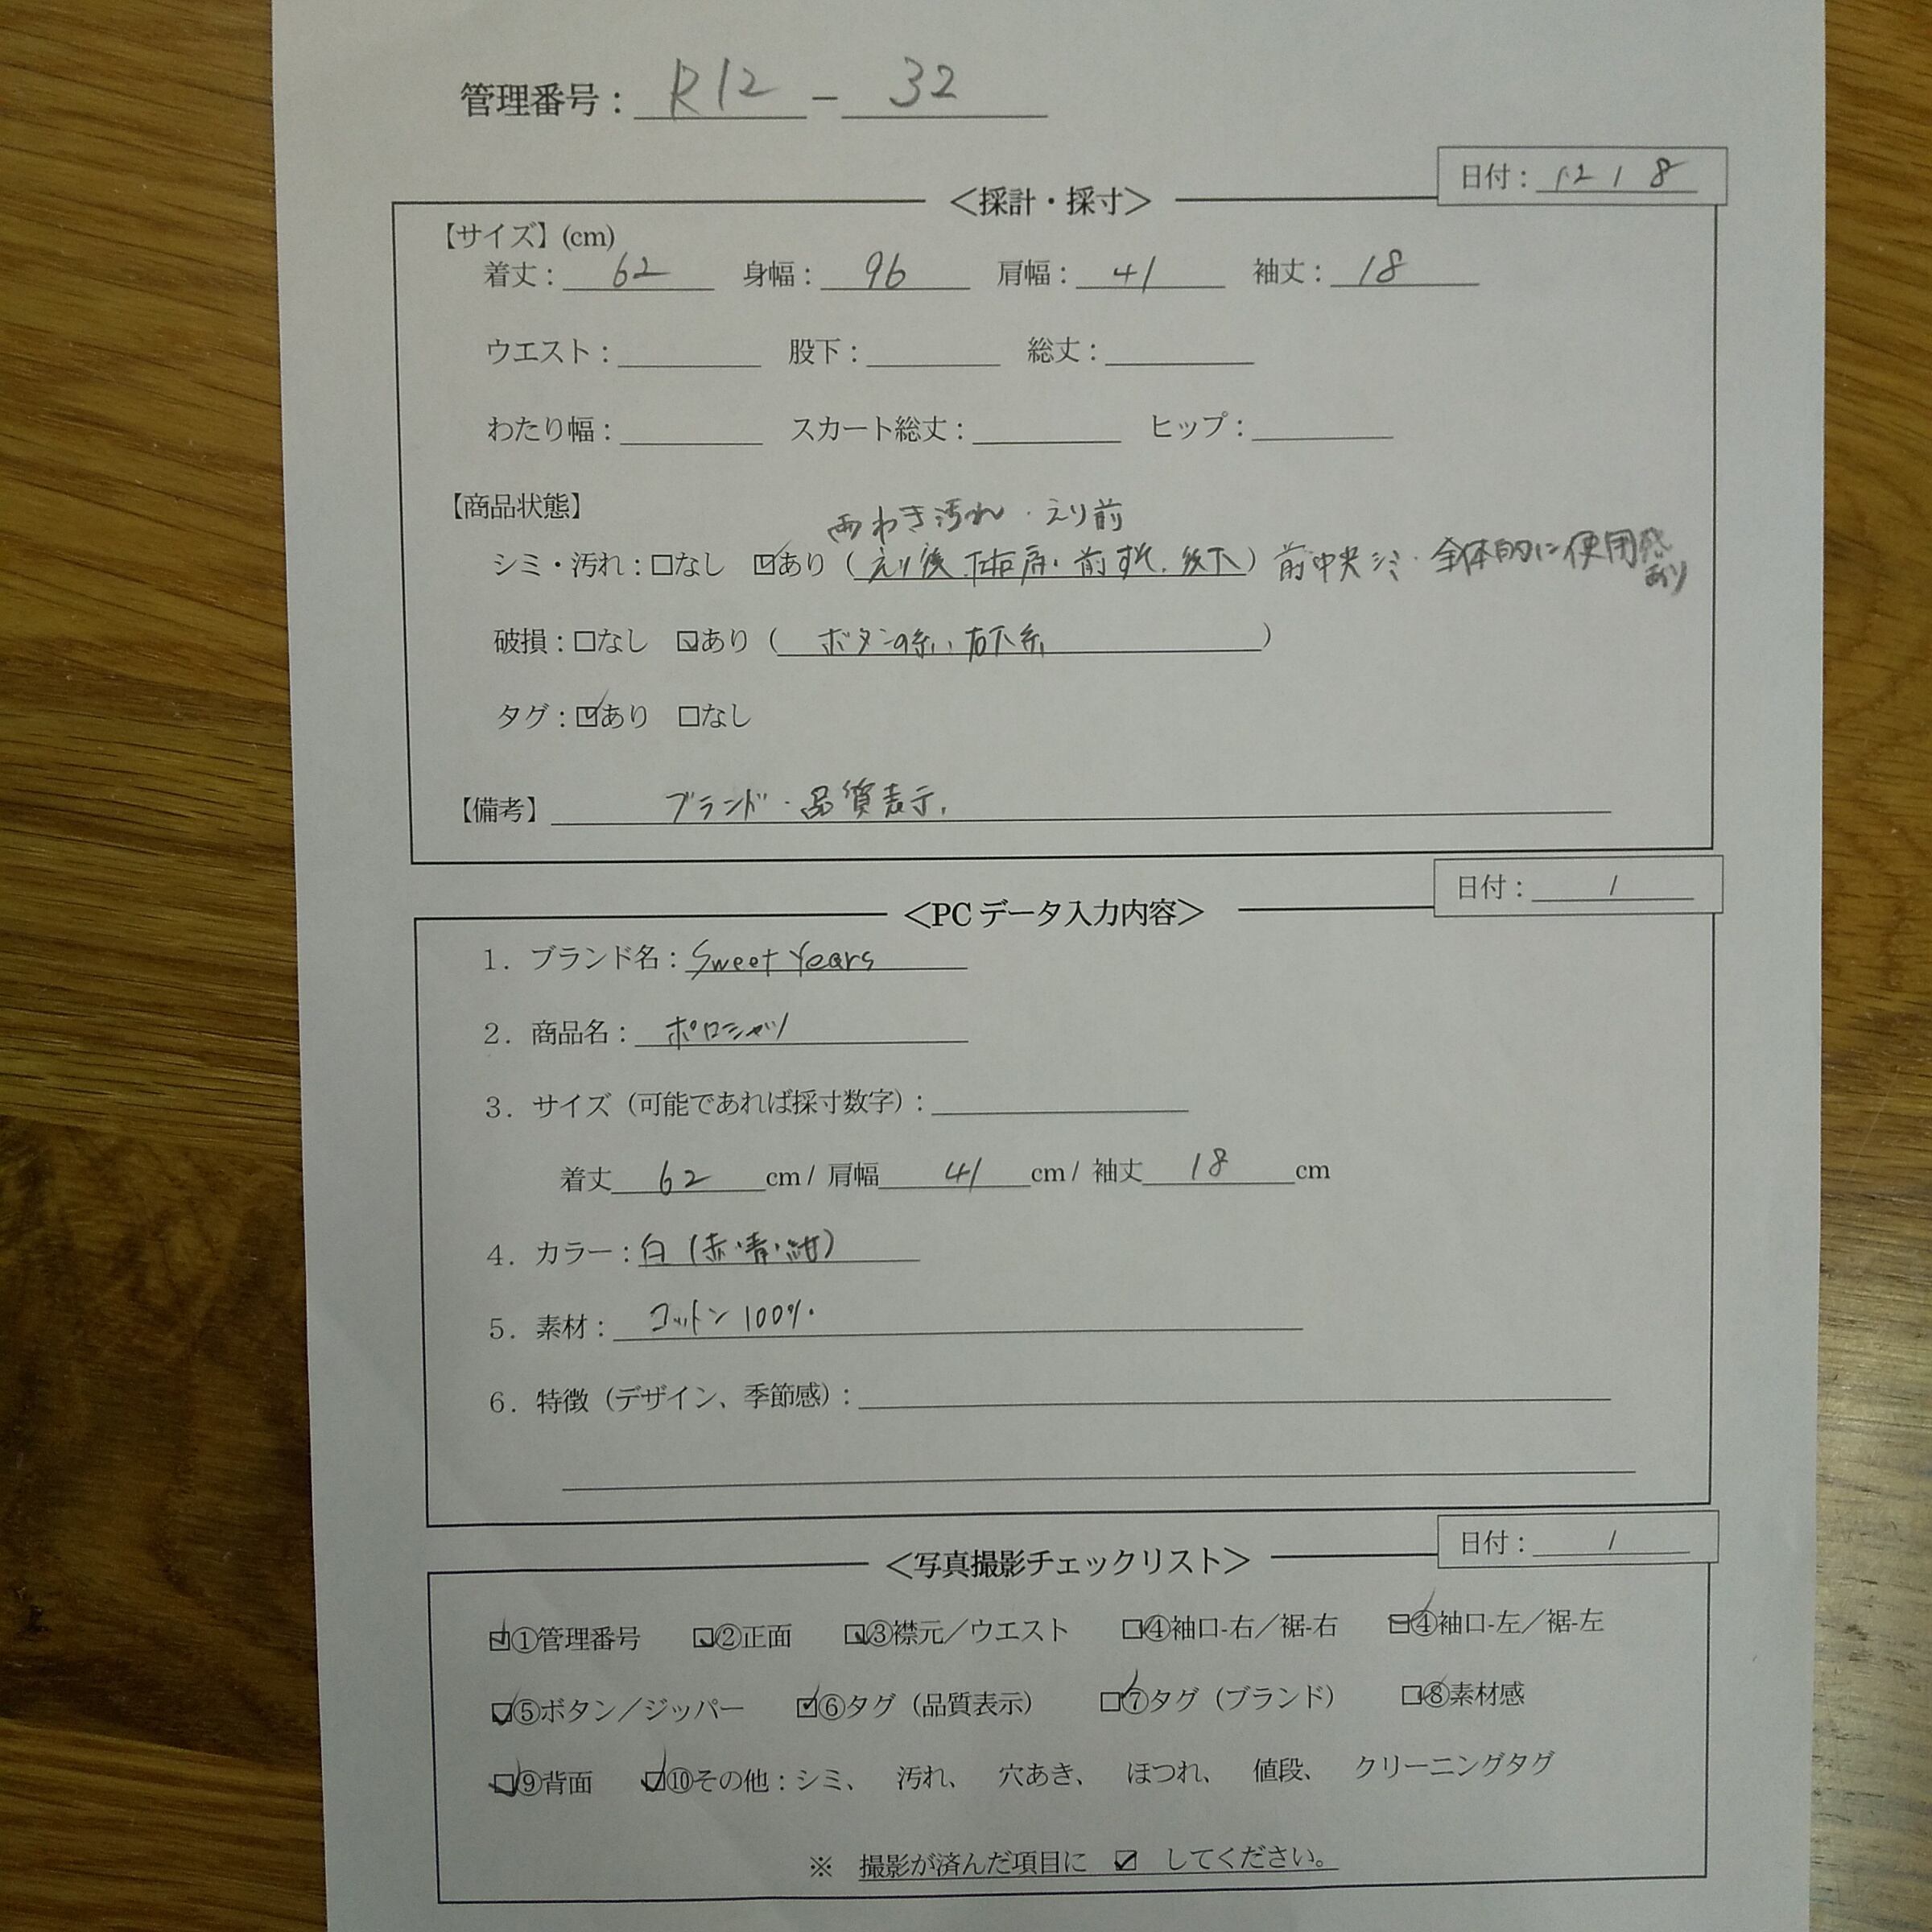 管理番号：R12 - 32
日付：12 / 8
＜採計・採寸＞
【サイズ】(cm)
着丈：62 身幅：96 肩幅：41 袖丈：18
ウエスト： 股下： 総丈：
わたり幅： スカート総丈： ヒップ：
【商品状態】
両わき汚れ・えり前
シミ・汚れ：□なし ☑あり（えり後 前すそ、後下）前中央シミ・全体的に使用感あり
破損：□なし ☑あり（ボタンの糸、右下糸）
タグ：☑あり □なし
【備考】ブランド・品質表示
日付： /
＜PCデータ入力内容＞
1．ブランド名：Sweet Years
2．商品名：ポロシャツ
3．サイズ（可能であれば採寸数字）：
着丈 62 cm / 肩幅 41 cm / 袖丈 18 cm
4．カラー：白（赤・青・紺）
5．素材：コットン 100%
6．特徴（デザイン、季節感）：
日付： /
＜写真撮影チェックリスト＞
☑①管理番号 ☑②正面 ☑③襟元／ウエスト ☑④袖口-右／裾-右 ☑④袖口-左／裾-左
☑⑤ボタン／ジッパー ☑⑥タグ（品質表示） ☑⑦タグ（ブランド） ☑⑧素材感
☑⑨背面 ☑⑩その他：シミ、 汚れ、 穴あき、 ほつれ、 値段、 クリーニングタグ
※ 撮影が済んだ項目に ☑ してください。